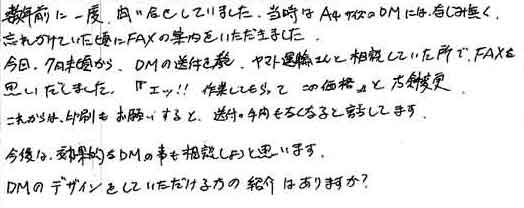 数年前に一度、問い合せしていました。当時はA4サイズのDMには、返し無く、
忘れかけていた頃にFAXの案内をいただきました。
今日、7月末頃から、DMの送付を考え、ヤマト運輸さんと相談していた所で、FAXを
思いだしました。『エッ!! 作業してもらって この価格』と 方針変更
これからは、印刷も お願いすると、送付の手間もなくなると話してます。
今後は、効果的なDMの事も相談しようと思います。
DMの デザインをしていただける方の 紹介 はありますか?